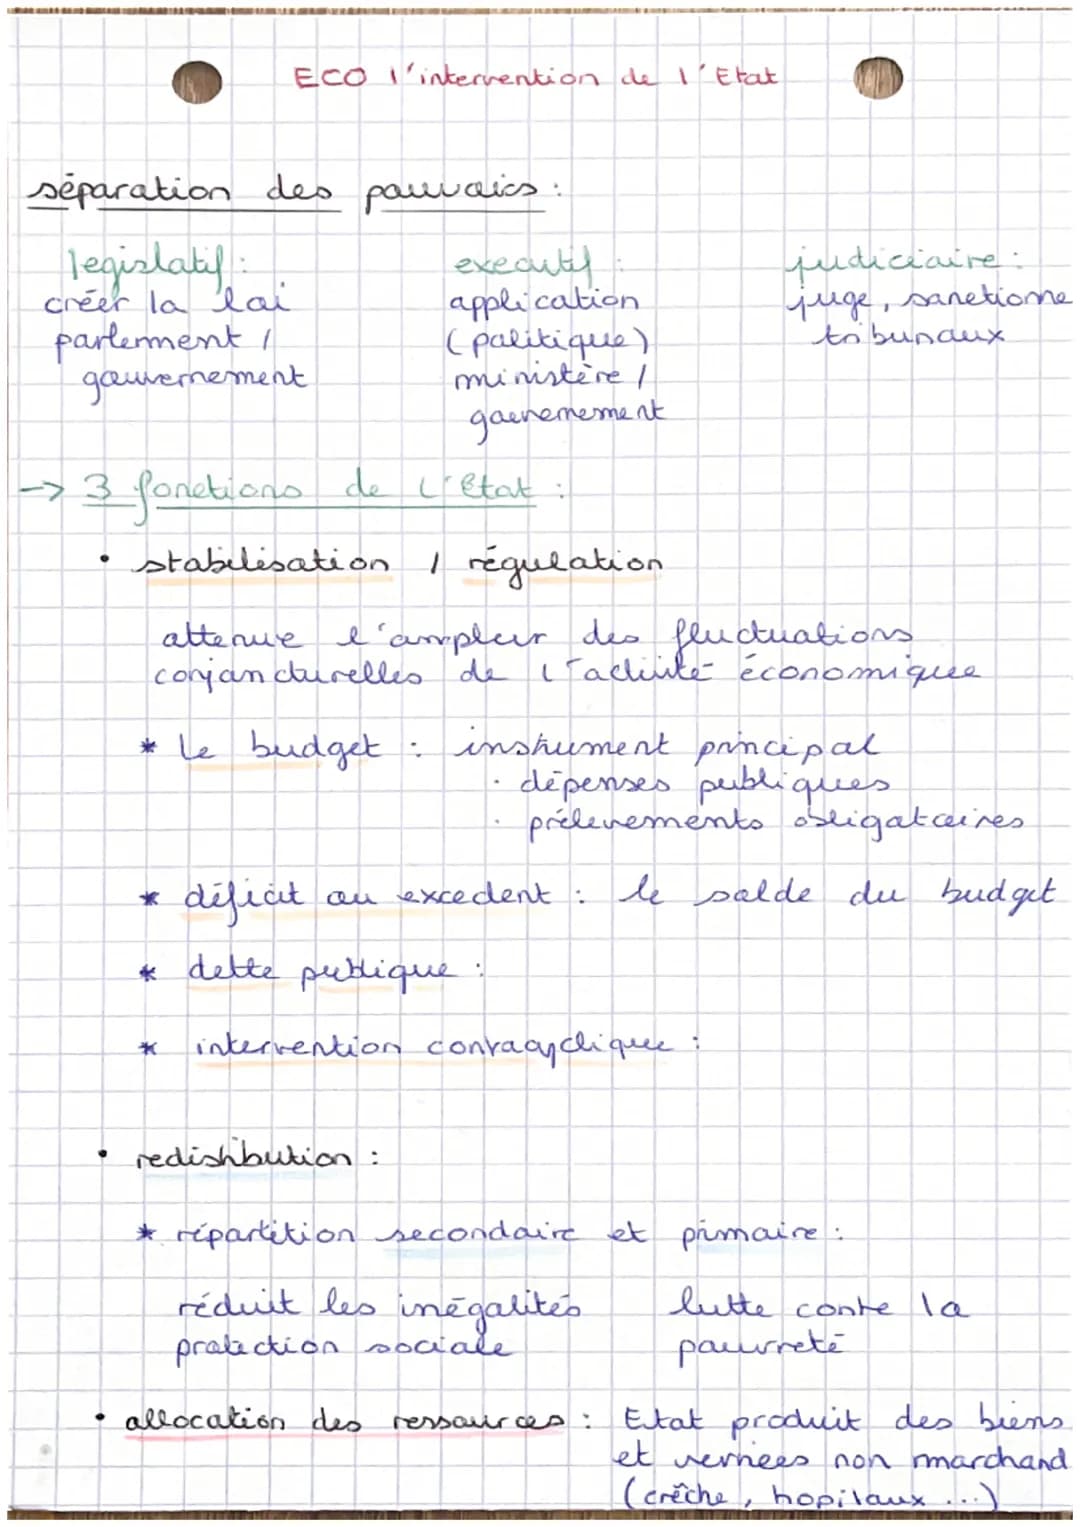 ECO l'intervention de l'Etat
séparation des pouvoirs :
legislatif :
créer la loi
parlement /
gouvernement
executif :
application
(politique)
ministère /
gouvernement
judiciaire :
juge, sanctionne
tribunaux
-> 3 fonctions de l'Etat :
• stabilisation / régulation
attenue l'ampleur des fluctuations
conjoncturelles de l'activité économique
* Le budget : instrument principal
· dépenses publiques
· prélevements obligatoires
* déficit ou excedent : le solde du budget
* dette publique :
* intervention contracyclique :
• redistribution :
* répartition secondaire et primaire :
réduit les inégalités
protection sociale
lutte contre la
pauvreté
• allocation des ressources : Etat produit des biens
et services non marchand
(crêche, hopitaux ...)